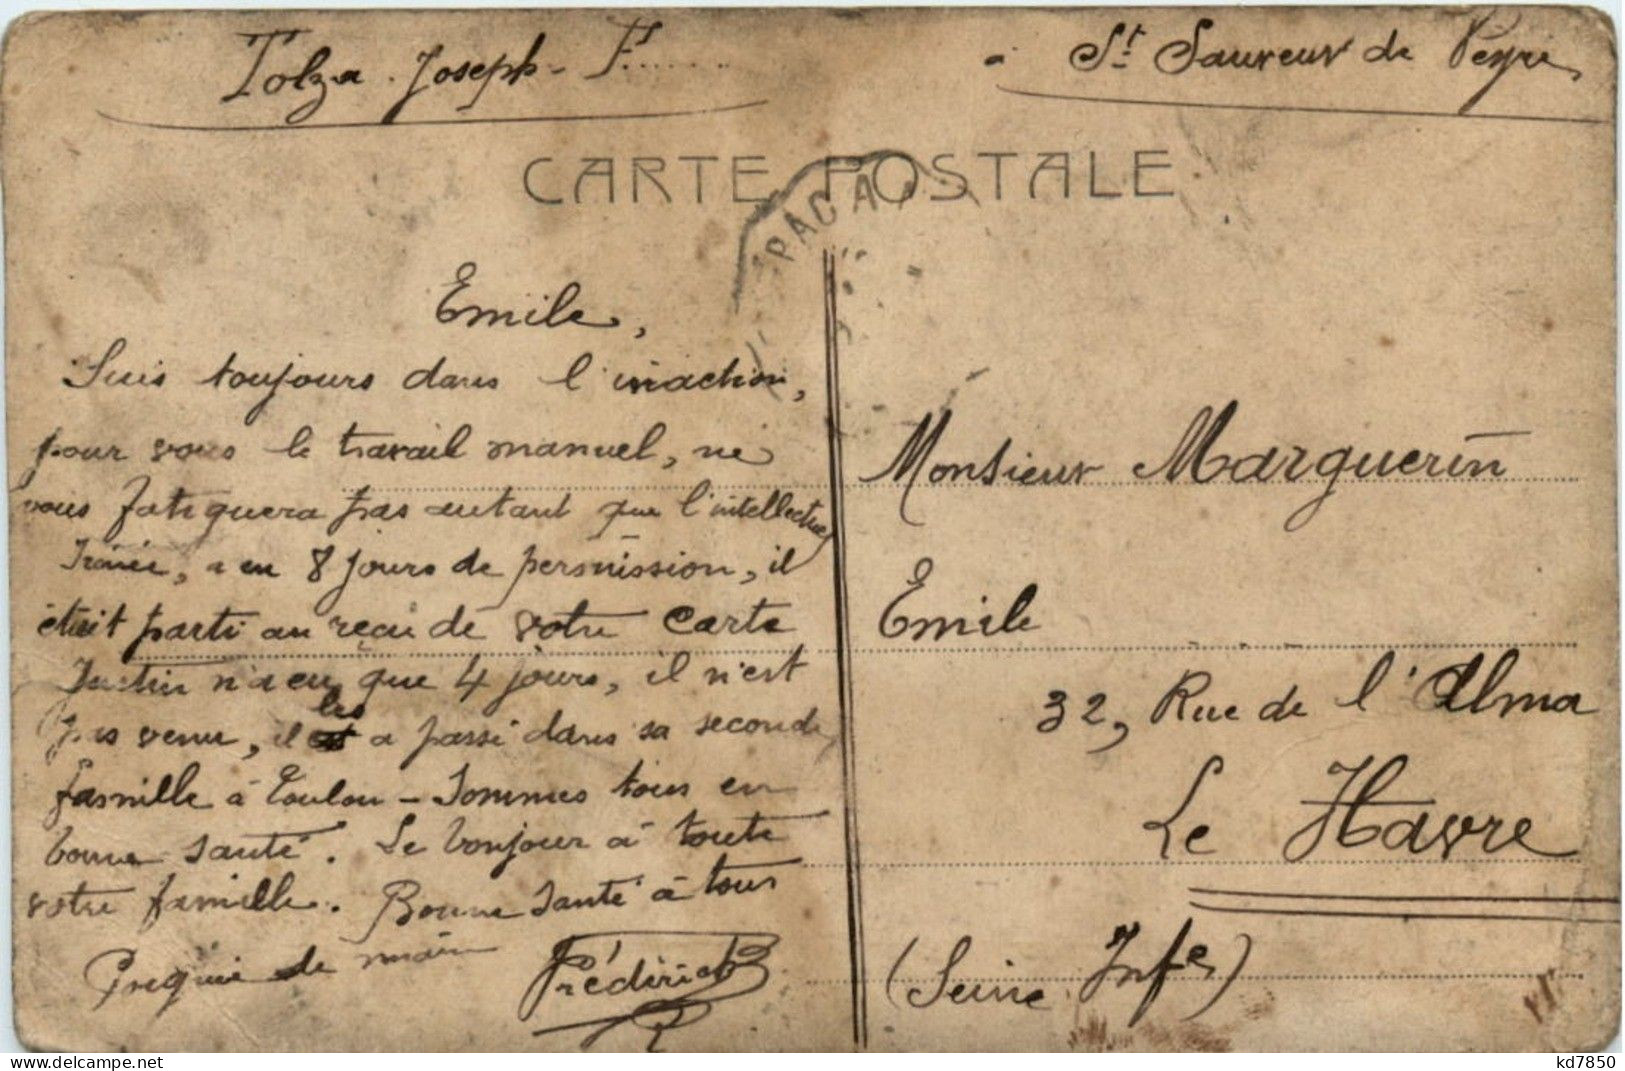 Tolza. Joseph- F.......
à St Sauveur de Peyre
CARTE POSTALE
PAC A
Emile,
Suis toujours dans l'inaction,
pour vous le travail manuel, ne
vous fatiguera pas autant que l'intellectuel
Irénée, a eu 8 jours de permission, il
était parti au reçu de votre carte
Justin n'a eu que 4 jours, il n'est
pas venu, il les a passé dans sa seconde
famille à Toulon - Sommes tous en
bonne santé. Le bonjour à toute
votre famille. Bonne santé à tous
de main
Frédérick
Monsieur Marguerin
Emile
32, Rue de l'Alma
Le Havre
(Seine Infe)
https://www.delcampe.net
kd7850